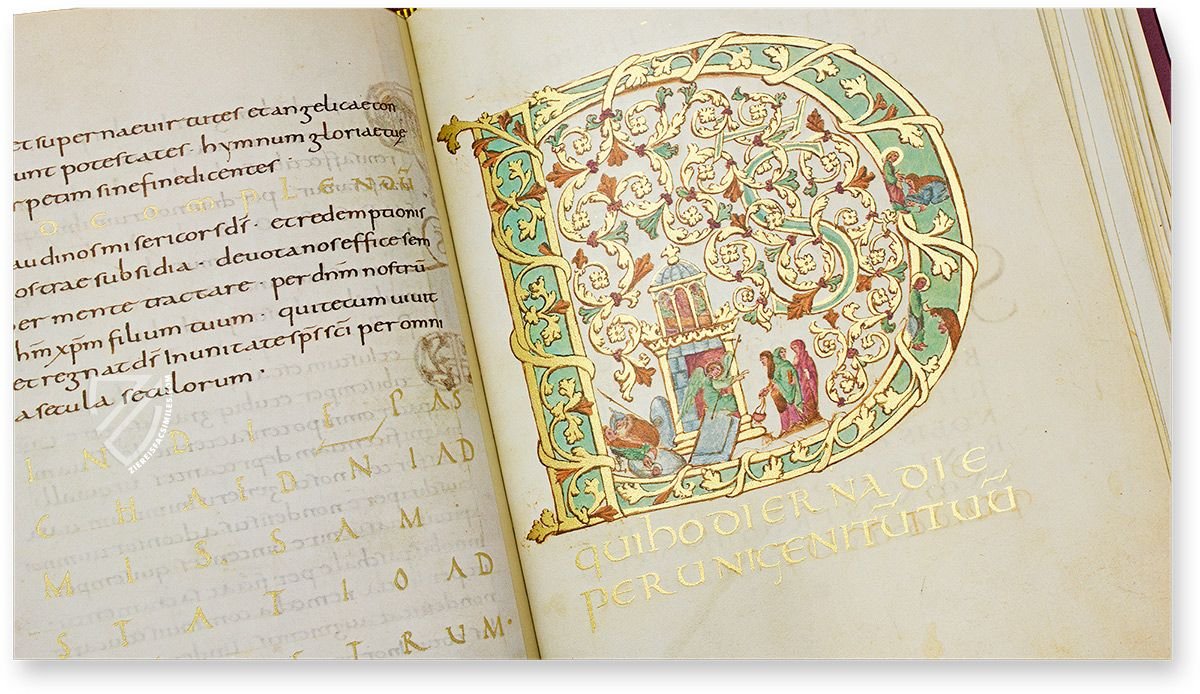 et supernae uirtutes et angelicae con
unt potestates · hymnum gloriae tuę
petim sine fine dicentes ·
COMPLENDŪ
audi nos misericors dš · et redemptionis
ostrae subsidia · deuota nos effice sem
per mente tractare · per dnm nostrū
ihm xpm filium tuum · qui tecum uiuit
et regnat dš In unitate sps sci per omni
a secula seculorum ·
IN DIE PAS
CHAE DNI AD
MISSAM ·
STATIO AD
TRUM ·
D S
qui hodierna die
per unigenitūtuū
ZIEREISFACSIMILES